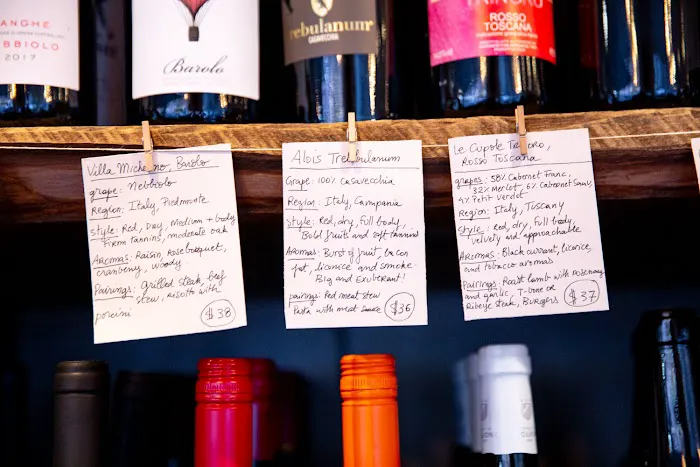 ANGHE
BBIOLO
2017
Barolo
rebulanum
CASAVECCHIA
ROSSO
TOSCANA
Villa Barolo
grape: Nebbiolo
Region: Italy, Piedmonte
style: Red, Dry, Medium + body
Firm tannins, moderate oak
Aromas: Raisin, Rose bouquet,
cranberry, woody
Pairings: Grilled steak, beef
stew, risotto with
porcini
$38
Alois Trebulanum
Grape: 100% Casavecchia
Region: Italy, Campania
style: Red, dry, full body,
Bold fruits and soft tannins
Aromas: Burst of fruit, bacon
fat, licorice and smoke.
Big and Exuberant!
pairings: Red meat stew
Pasta with meat sauce
$36
Le Cupole Trinoro,
Rosso Toscana
grapes: 58% Cabernet Franc,
32% Merlot, 6% Cabernet Sauv,
4% Petit Verdot
Region: Italy, Tuscany
style: Red, dry, Full body,
velvety and approachable
Aromas: Black currant, licorice,
and tobacco aromas
Pairings: Roast lamb with rosemary
and garlic, T-bone or
Ribeye steak, Burgers
$37